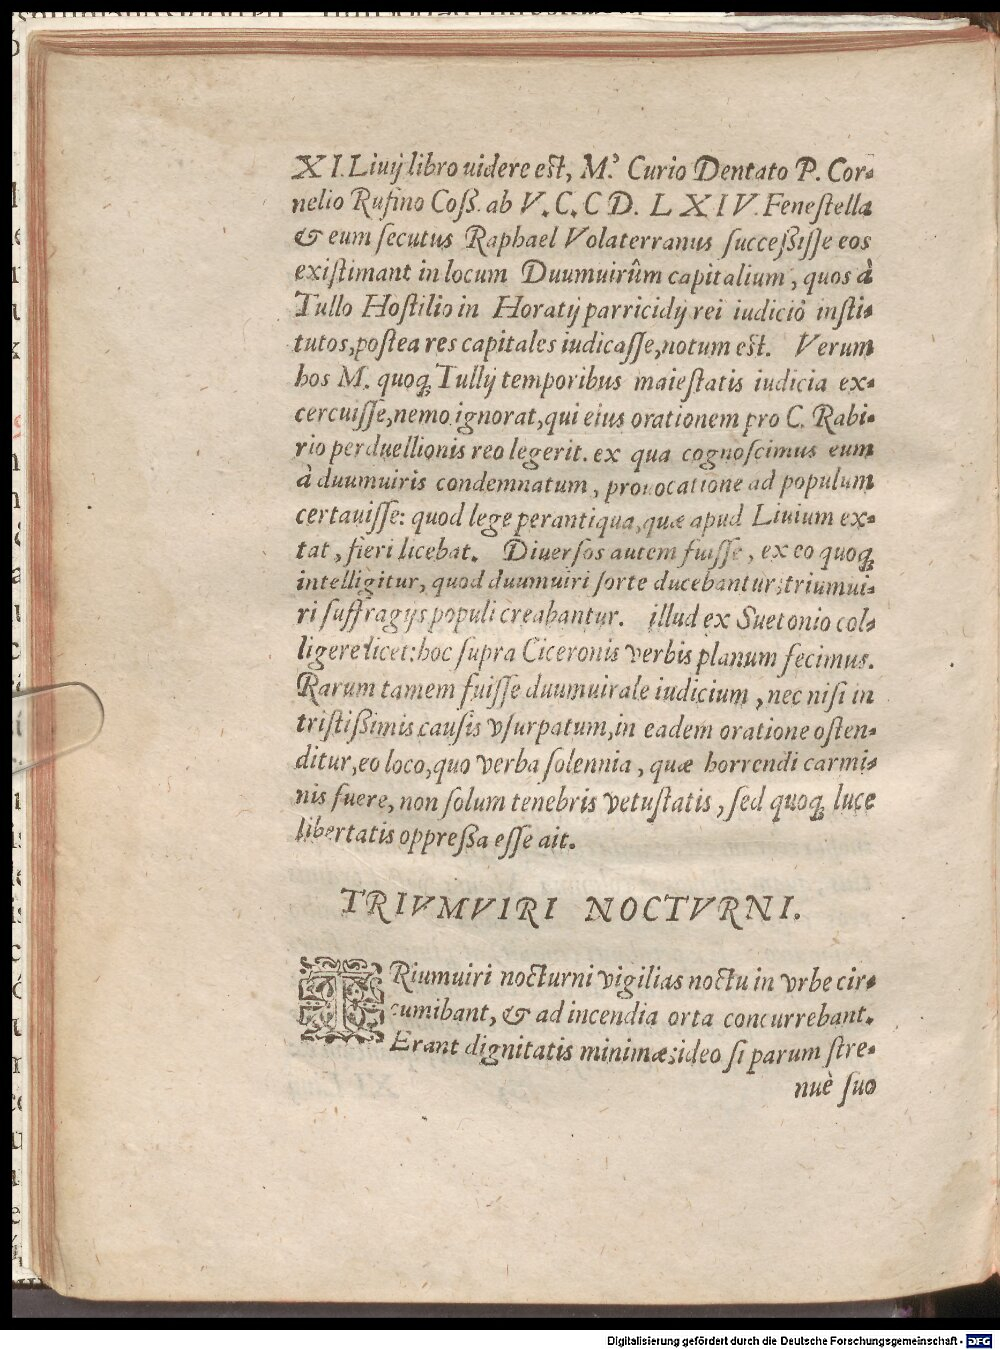 XI. Liuij libro uidere est, M.' Curio Dentato P. Cor-
nelio Rufino Coß. ab V. C. C D. L X I V. Feneſtella
& eum ſecutus Raphael Volaterranus ſucceßiſſe eos
exiſtimant in locum Duumuirûm capitalium, quos à
Tullo Hoſtilio in Horatij parricidij rei iudicio inſti-
tutos, poſtea res capitales iudicaſſe, notum est. Verum
hos M. quoq; Tullij temporibus maieſtatis iudicia ex-
cercuiſſe, nemo ignorat, qui eius orationem pro C. Rabi-
rio perduellionis reo legerit. ex qua cognoſcimus eum
à duumuiris condemnatum, prouocatione ad populum
certauiſſe: quod lege perantiqua, quæ apud Liuium ex-
tat, fieri licebat. Diuerſos autem fuiſſe, ex eo quoq;
intelligitur, quod duumuiri ſorte ducebantur: triumui-
ri ſuffragijs populi creabantur. illud ex Suetonio col-
ligere licet: hoc ſupra Ciceronis verbis planum fecimus.
Rarum tamem fuiſſe duumuirale iudicium, nec niſi in
triſtißimis cauſis vſurpatum, in eadem oratione oſten-
ditur, eo loco, quo verba ſolennia, quæ horrendi carmi-
nis fuere, non ſolum tenebris vetuſtatis, ſed quoq; luce
libertatis oppreßa eſſe ait.
TRIVMVIRI NOCTVRNI.
TRiumuiri nocturni vigilias noctu in vrbe cir-
cumibant, & ad incendia orta concurrebant.
Erant dignitatis minimæ: ideo ſi parum ſtre-
nuè ſuo
Digitalisierung gefördert durch die Deutsche Forschungsgemeinschaft - DFG